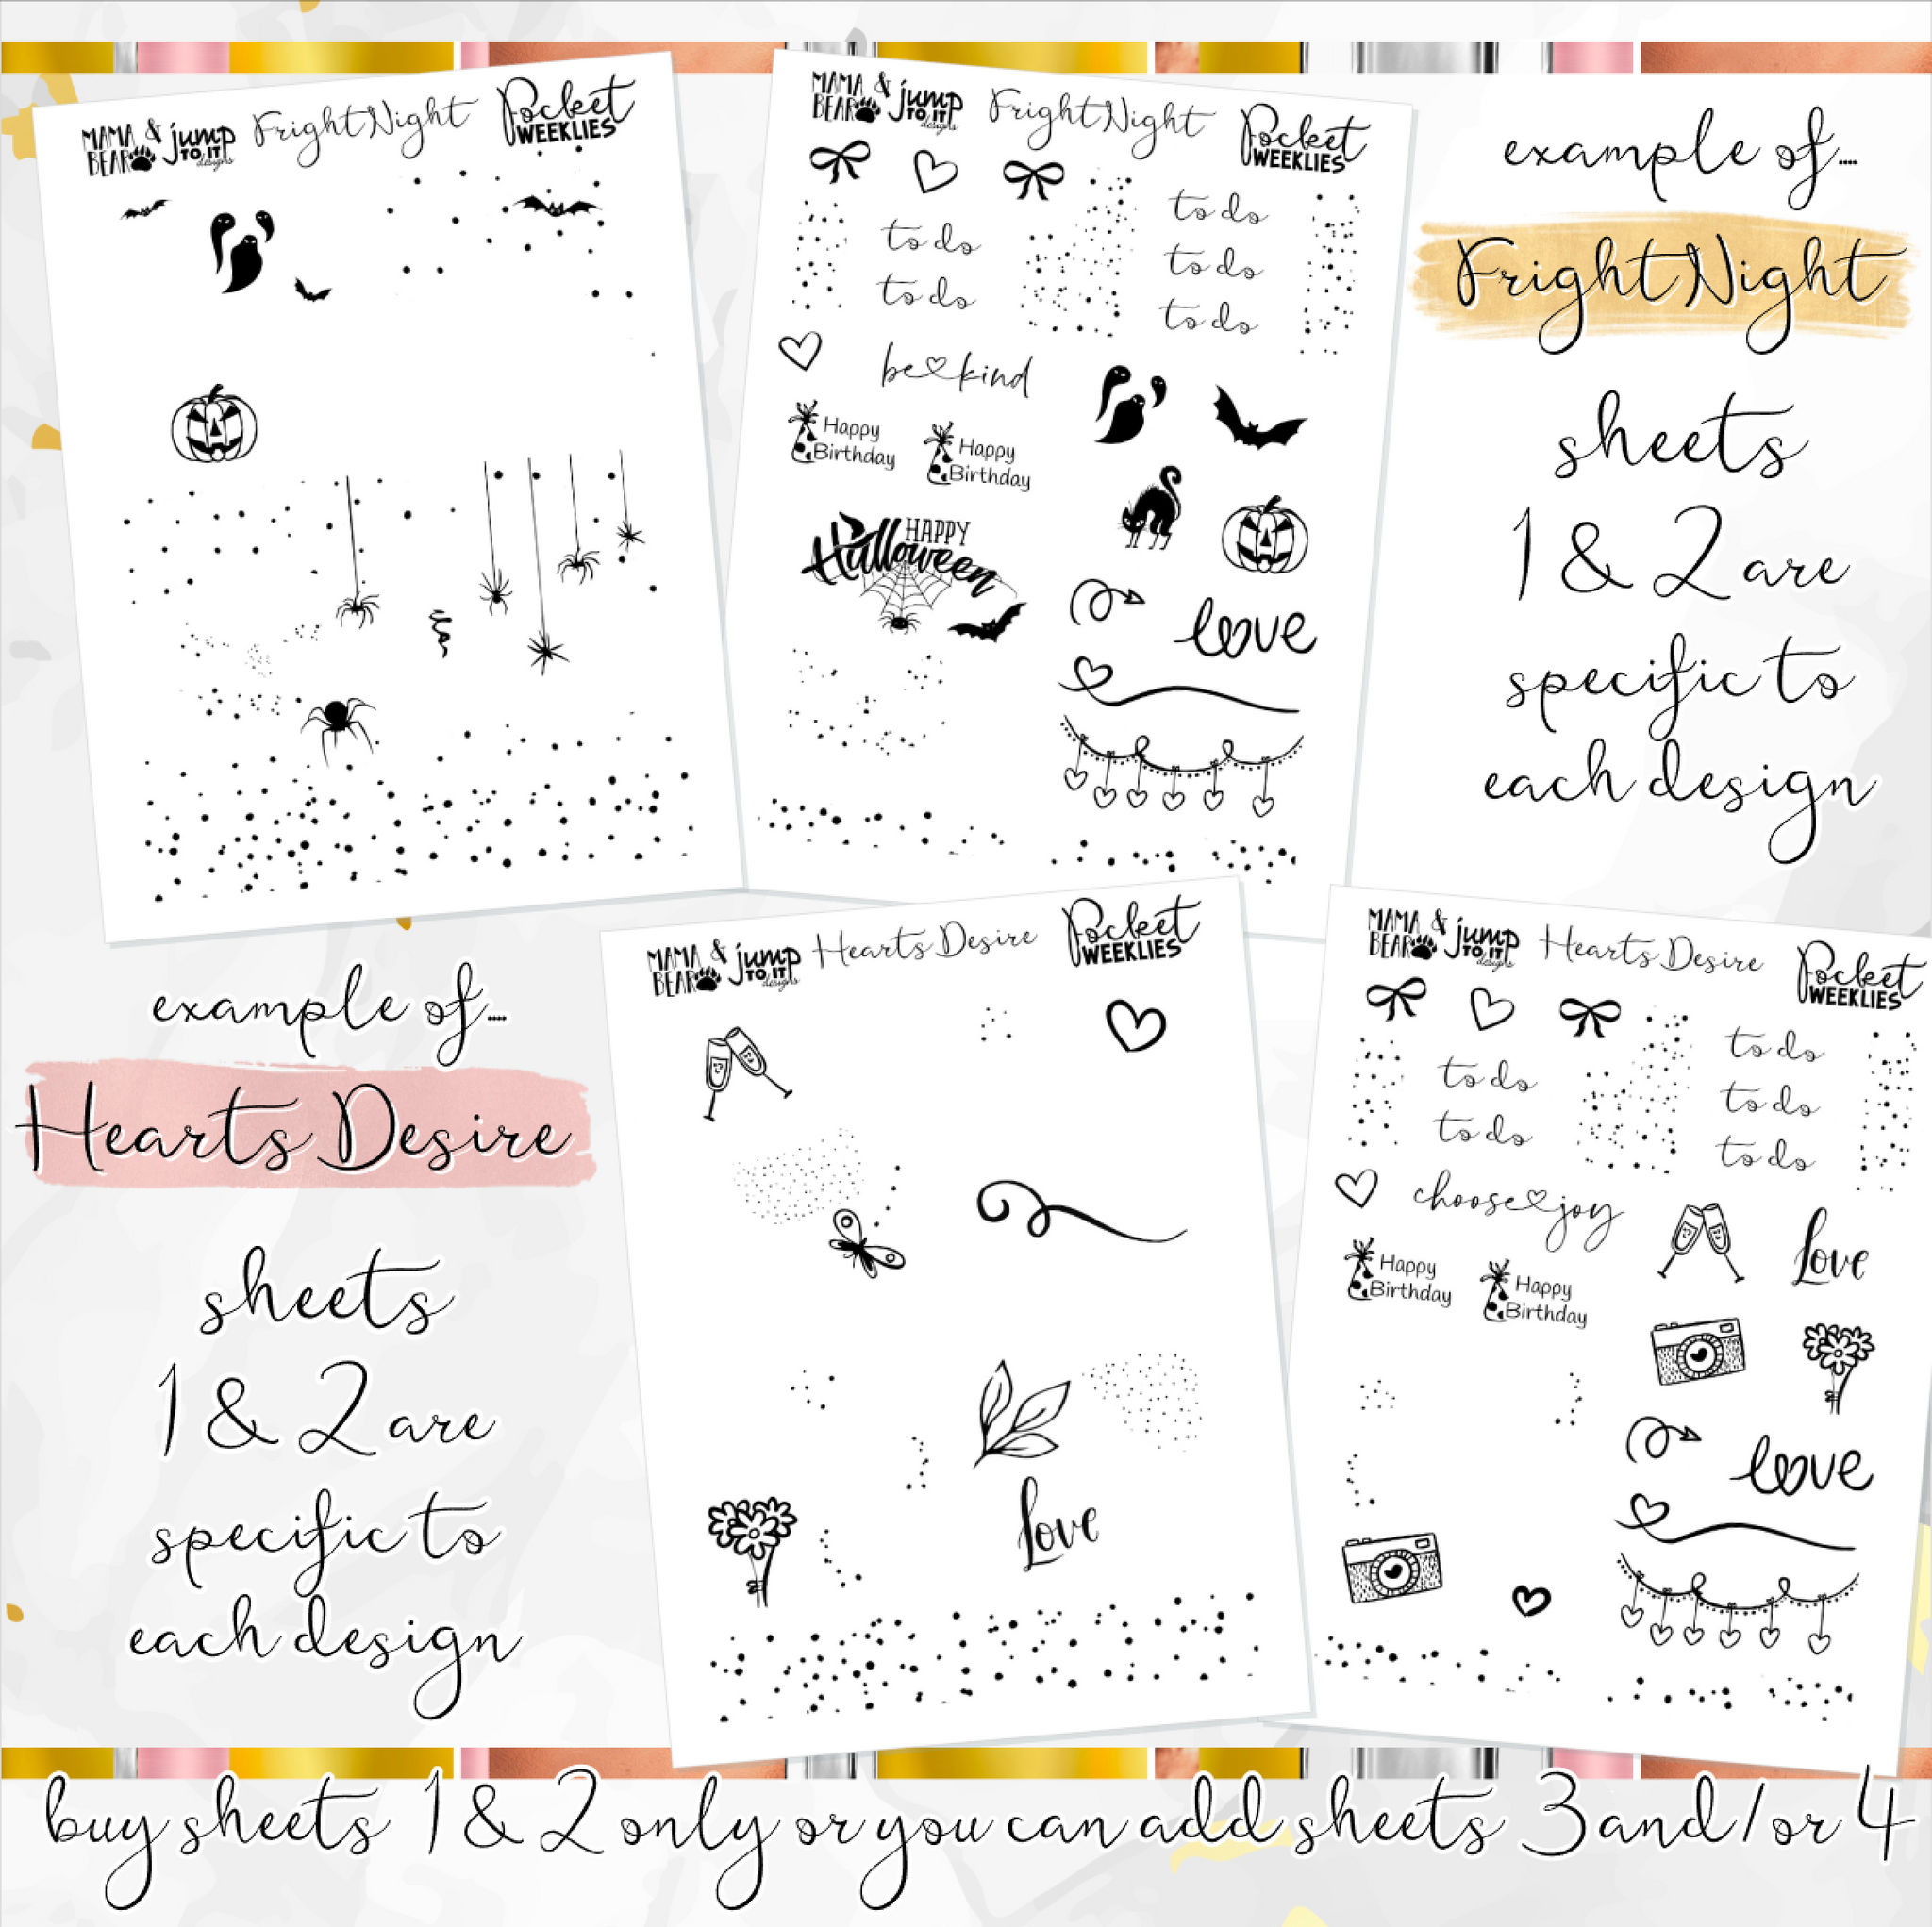 MAMA & jump
BEAR TO IT
designs
Fright Night
Pocket
WEEKLIES
MAMA & jump
BEAR TO IT
designs
Fright Night
Pocket
WEEKLIES
to do
to do
to do
to do
to do
be kind
Happy
Birthday
Happy
Birthday
HAPPY
Halloween
love
example of....
Fright Night
sheets
1 & 2 are
specific to
each design
example of....
Hearts Desire
sheets
1 & 2 are
specific to
each design
MAMA & jump
BEAR TO IT
designs
Hearts Desire
Pocket
WEEKLIES
Love
MAMA & jump
BEAR TO IT
designs
Hearts Desire
Pocket
WEEKLIES
to do
to do
to do
to do
to do
choose joy
Happy
Birthday
Happy
Birthday
Love
love
buy sheets 1 & 2 only or you can add sheets 3 and/or 4